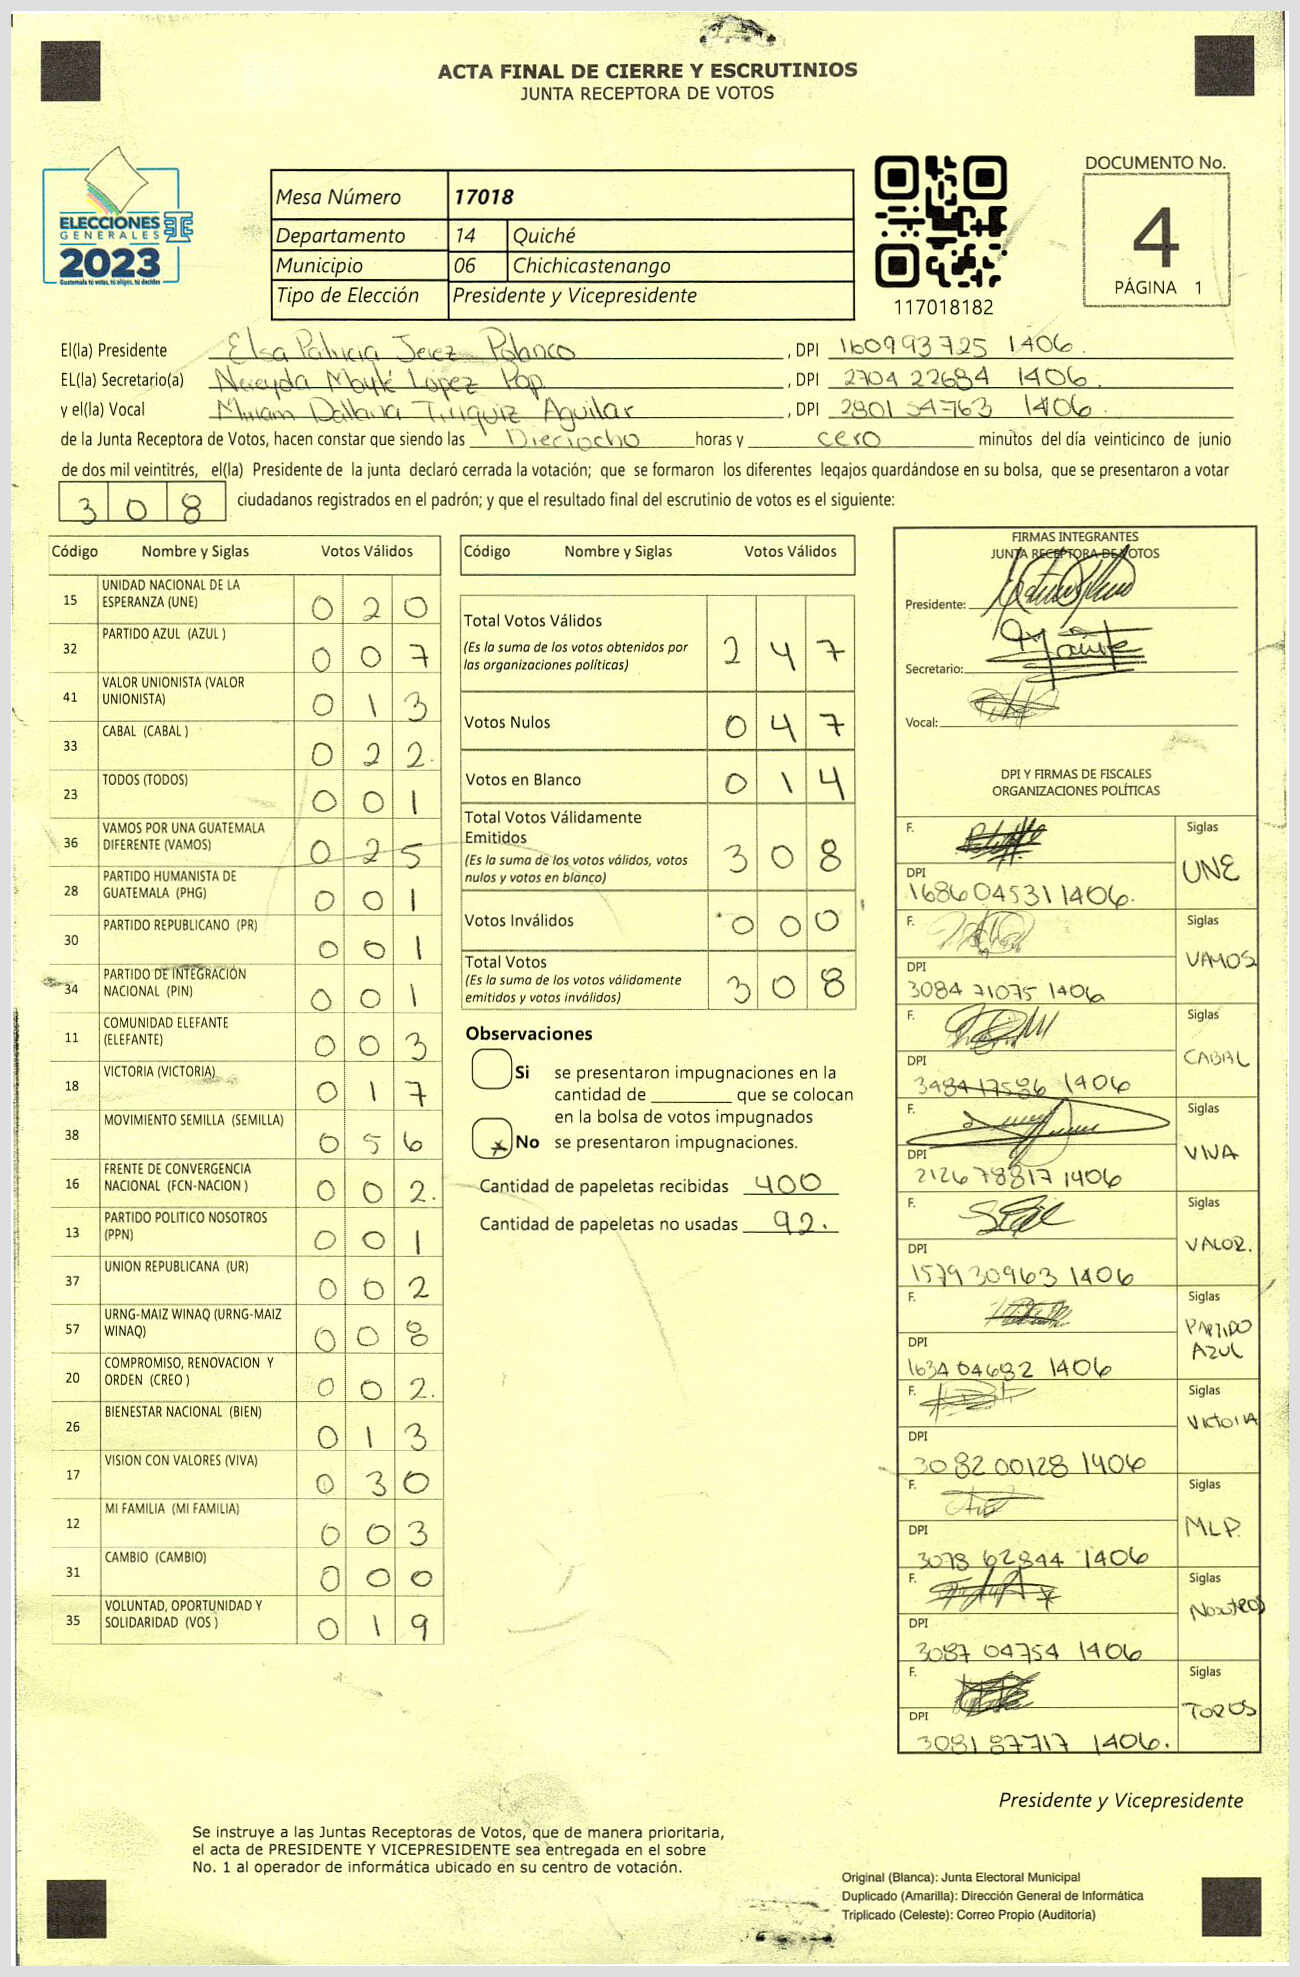 ACTA FINAL DE CIERRE Y ESCRUTINIOS
JUNTA RECEPTORA DE VOTOS
ELECCIONES
GENERALES
2023
Guatemala tú votas, tú eliges, tú decides
Mesa Número 17018
Departamento 14 Quiché
Municipio 06 Chichicastenango
Tipo de Elección Presidente y Vicepresidente
117018182
DOCUMENTO No.
4
PÁGINA 1
El(la) Presidente Elsa Patricia Jerez Polanco, DPI 160993725 1406.
EL(la) Secretario(a) Nereyda Mayté López Pop., DPI 2704 22684 1406.
y el(la) Vocal Miriam Dallana Tiriquiz Aguilar, DPI 2801 54763 1406.
de la Junta Receptora de Votos, hacen constar que siendo las Dieciocho horas y cero minutos del día veinticinco de junio
de dos mil veintitrés, el(la) Presidente de la junta declaró cerrada la votación; que se formaron los diferentes legajos quardándose en su bolsa, que se presentaron a votar
308 ciudadanos registrados en el padrón; y que el resultado final del escrutinio de votos es el siguiente:
Código Nombre y Siglas Votos Válidos
15 UNIDAD NACIONAL DE LA ESPERANZA (UNE) 020
32 PARTIDO AZUL (AZUL ) 007
41 VALOR UNIONISTA (VALOR UNIONISTA) 013
33 CABAL (CABAL ) 022.
23 TODOS (TODOS) 001
36 VAMOS POR UNA GUATEMALA DIFERENTE (VAMOS) 025
28 PARTIDO HUMANISTA DE GUATEMALA (PHG) 001
30 PARTIDO REPUBLICANO (PR) 001
34 PARTIDO DE INTEGRACIÓN NACIONAL (PIN) 001
11 COMUNIDAD ELEFANTE (ELEFANTE) 003
18 VICTORIA (VICTORIA) 017
38 MOVIMIENTO SEMILLA (SEMILLA) 056
16 FRENTE DE CONVERGENCIA NACIONAL (FCN-NACION ) 002.
13 PARTIDO POLITICO NOSOTROS (PPN) 001
37 UNION REPUBLICANA (UR) 002
57 URNG-MAIZ WINAQ (URNG-MAIZ WINAQ) 008
20 COMPROMISO, RENOVACION Y ORDEN (CREO ) 002.
26 BIENESTAR NACIONAL (BIEN) 013
17 VISION CON VALORES (VIVA) 030
12 MI FAMILIA (MI FAMILIA) 003
31 CAMBIO (CAMBIO) 000
35 VOLUNTAD, OPORTUNIDAD Y SOLIDARIDAD (VOS ) 019
Código Nombre y Siglas Votos Válidos
Total Votos Válidos
(Es la suma de los votos obtenidos por
las organizaciones políticas) 247
Votos Nulos 047
Votos en Blanco 014
Total Votos Válidamente
Emitidos
(Es la suma de los votos válidos, votos
nulos y votos en blanco) 308
Votos Inválidos 000
Total Votos
(Es la suma de los votos válidamente
emitidos y votos inválidos) 308
Observaciones
Si se presentaron impugnaciones en la
cantidad de ________ que se colocan
en la bolsa de votos impugnados
x No se presentaron impugnaciones.
Cantidad de papeletas recibidas 400
Cantidad de papeletas no usadas 92.
FIRMAS INTEGRANTES
JUNTA RECEPTORA DE VOTOS
Presidente:
Secretario:
Vocal:
DPI Y FIRMAS DE FISCALES
ORGANIZACIONES POLÍTICAS
F. Siglas UNE
DPI 1686 04531 1406.
F. Siglas VAMOS
DPI 3084 71075 1406
F. Siglas CABAL
DPI 3484 17586 1406
F. Siglas VIVA
DPI 2126 78817 1406
F. Siglas VALOR.
DPI 1579 30963 1406
F. Siglas PARTIDO AZUL
DPI 1634 04682 1406
F. Siglas VICTORIA
DPI 3082 00128 1406
F. Siglas MLP.
DPI 3078 62844 1406
F. Siglas NOSOTROS
DPI 3087 04754 1406
F. Siglas TODOS
DPI 3081 87717 1406.
Presidente y Vicepresidente
Se instruye a las Juntas Receptoras de Votos, que de manera prioritaria,
el acta de PRESIDENTE Y VICEPRESIDENTE sea entregada en el sobre
No. 1 al operador de informática ubicado en su centro de votación.
Original (Blanca): Junta Electoral Municipal
Duplicado (Amarilla): Dirección General de Informática
Triplicado (Celeste): Correo Propio (Auditoría)